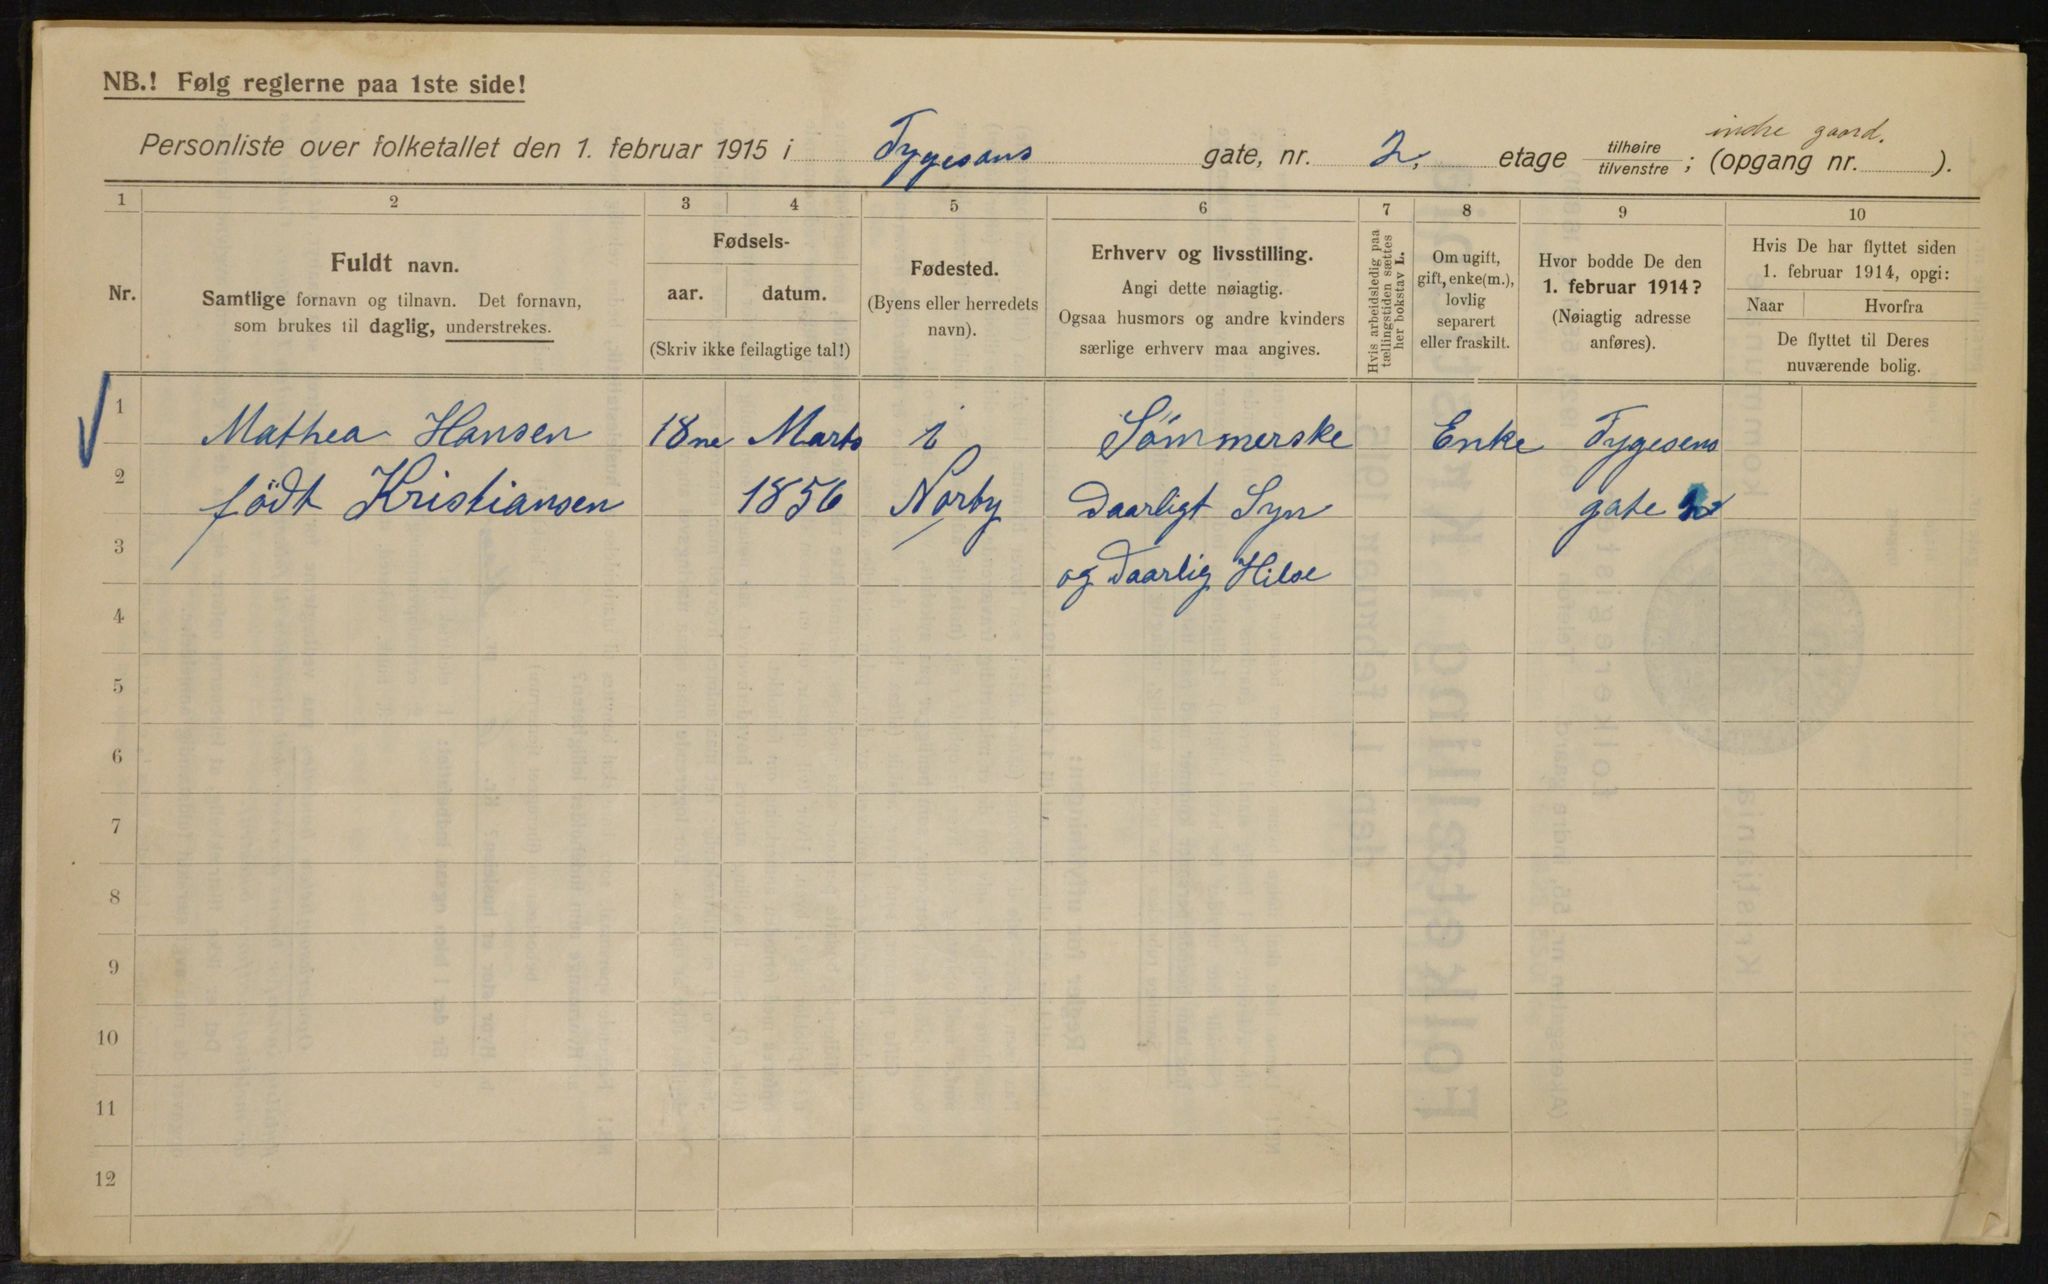 NB.! Følg reglerne paa 1ste side!
Personliste over folketallet den 1. februar 1915 i Tygesens gate, nr. 2, etage tilhøire/tilvenstre; (opgang nr. ).
indre gaard.
1 2 3 4 5 6 7 8 9 10
Nr.
Fuldt navn.
Samtlige fornavn og tilnavn. Det fornavn,
som brukes til daglig, understrekes.
Fødsels-
aar. datum.
(Skriv ikke feilagtige tal!)
Fødested.
(Byens eller herredets
navn).
Erhverv og livsstilling.
Angi dette nøiagtig.
Ogsaa husmors og andre kvinders
særlige erhverv maa angives.
Hvis arbeidsledig paa
tællingstiden sættes
her bokstav L.
Om ugift,
gift, enke(m.),
lovlig
separert
eller fraskilt.
Hvor bodde De den
1. februar 1914?
(Nøiagtig adresse
anføres).
Hvis De har flyttet siden
1. februar 1914, opgi:
Naar Hvorfra
De flyttet til Deres
nuværende bolig.
1 Mathea Hansen 18ne Marts i Sömmerske Enke Tygesens
2 född Kristiansen 1856 Norby Daarligt Syn gate 2
3 og Daarlig Hilse
4
5
6
7
8
9
10
11
12